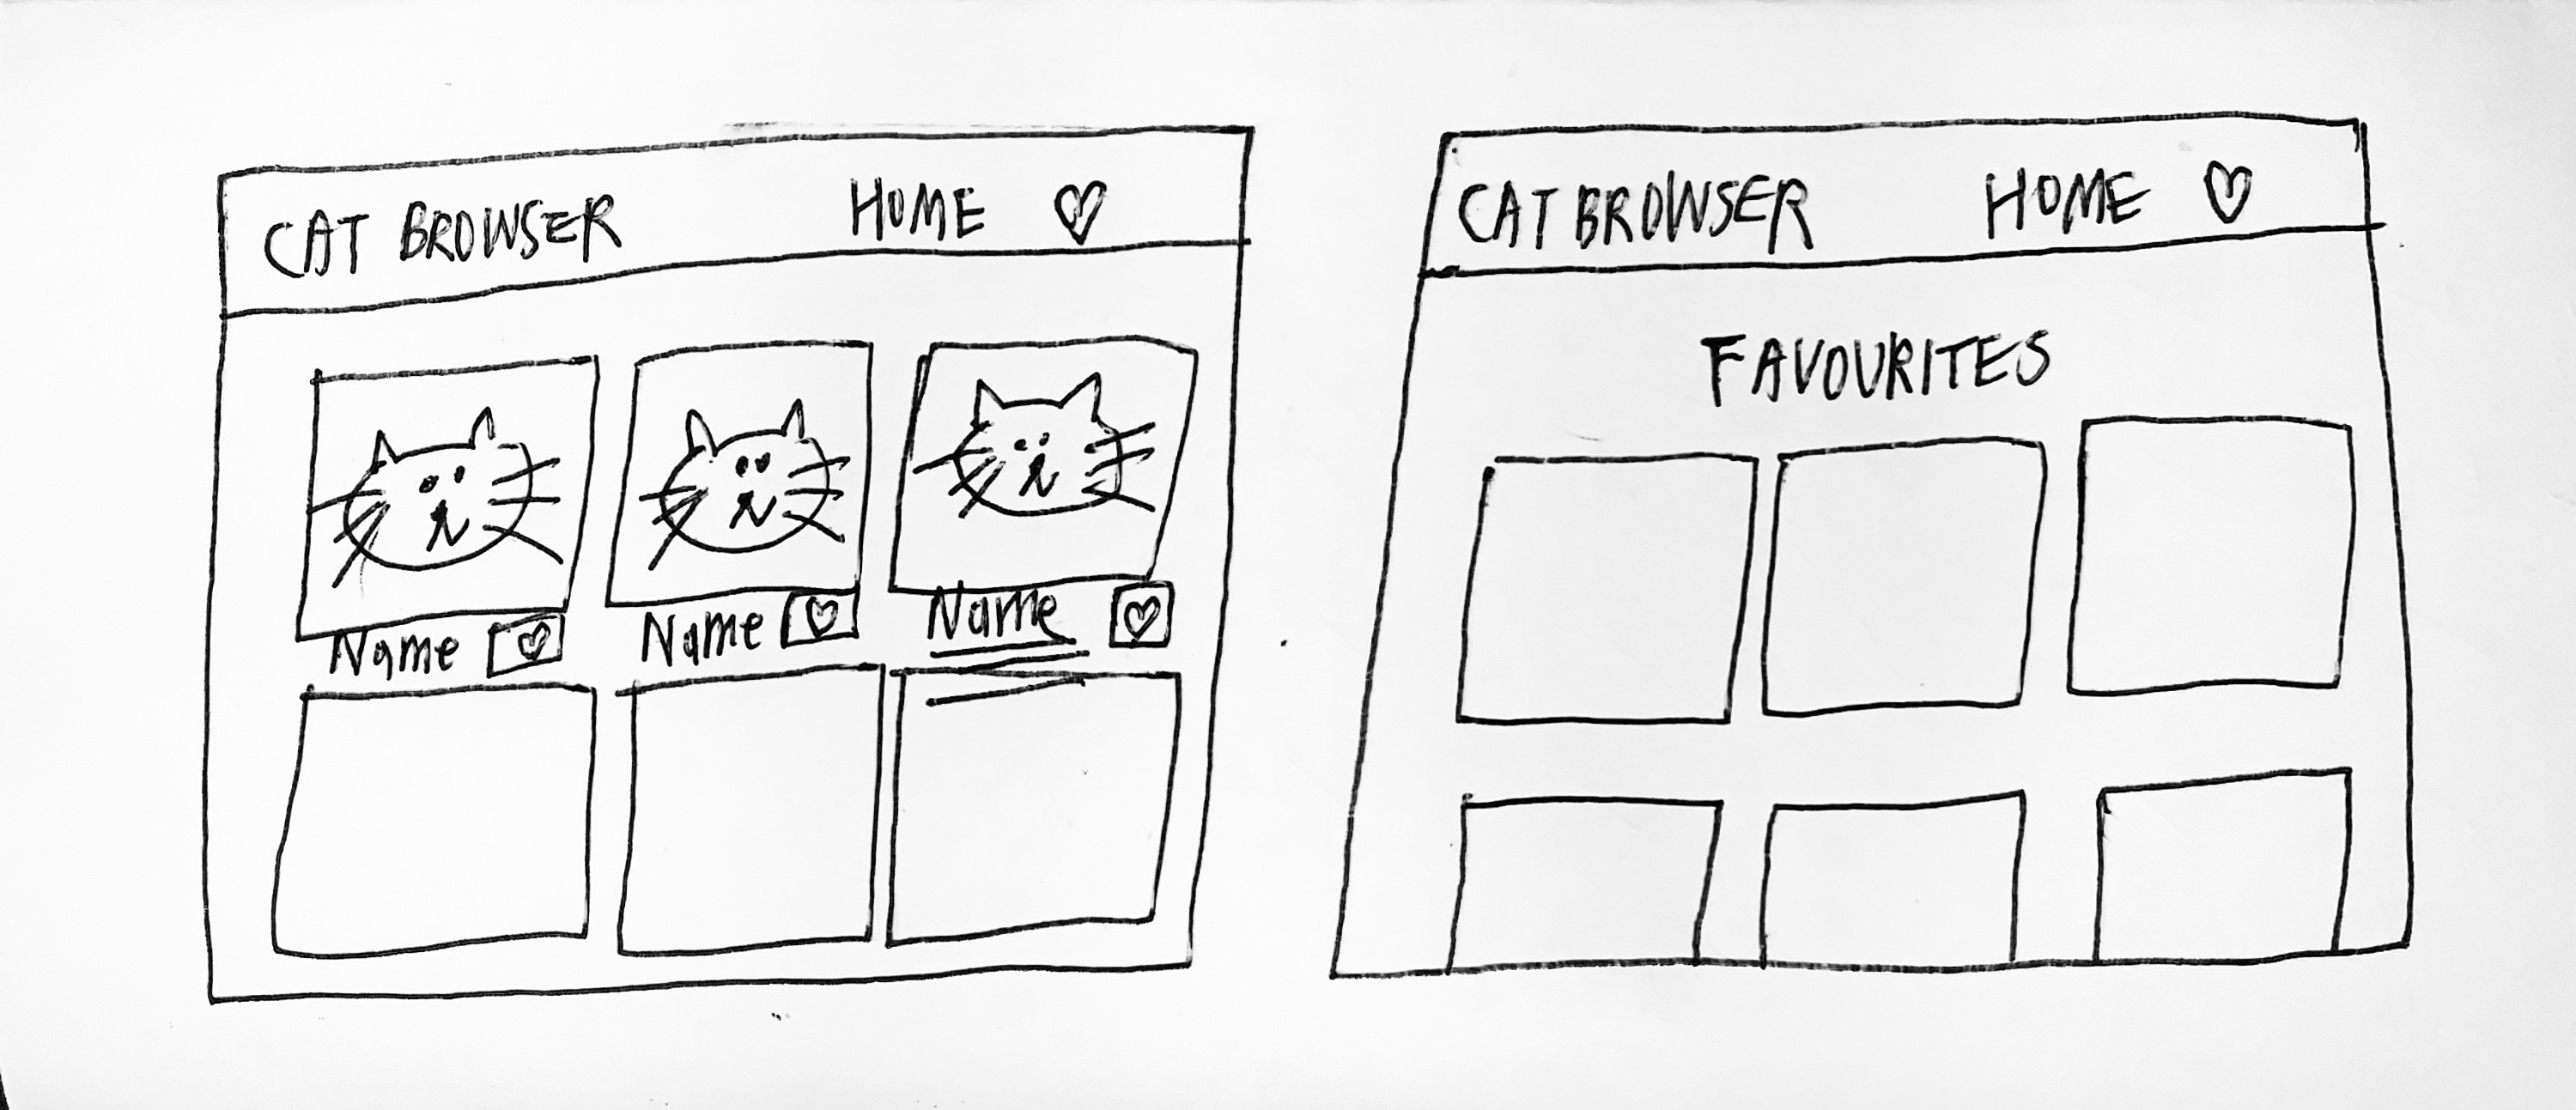 CAT BROWSER HOME ♡
Name ♡ Name ♡ Name ♡
CAT BROWSER HOME ♡
FAVOURITES